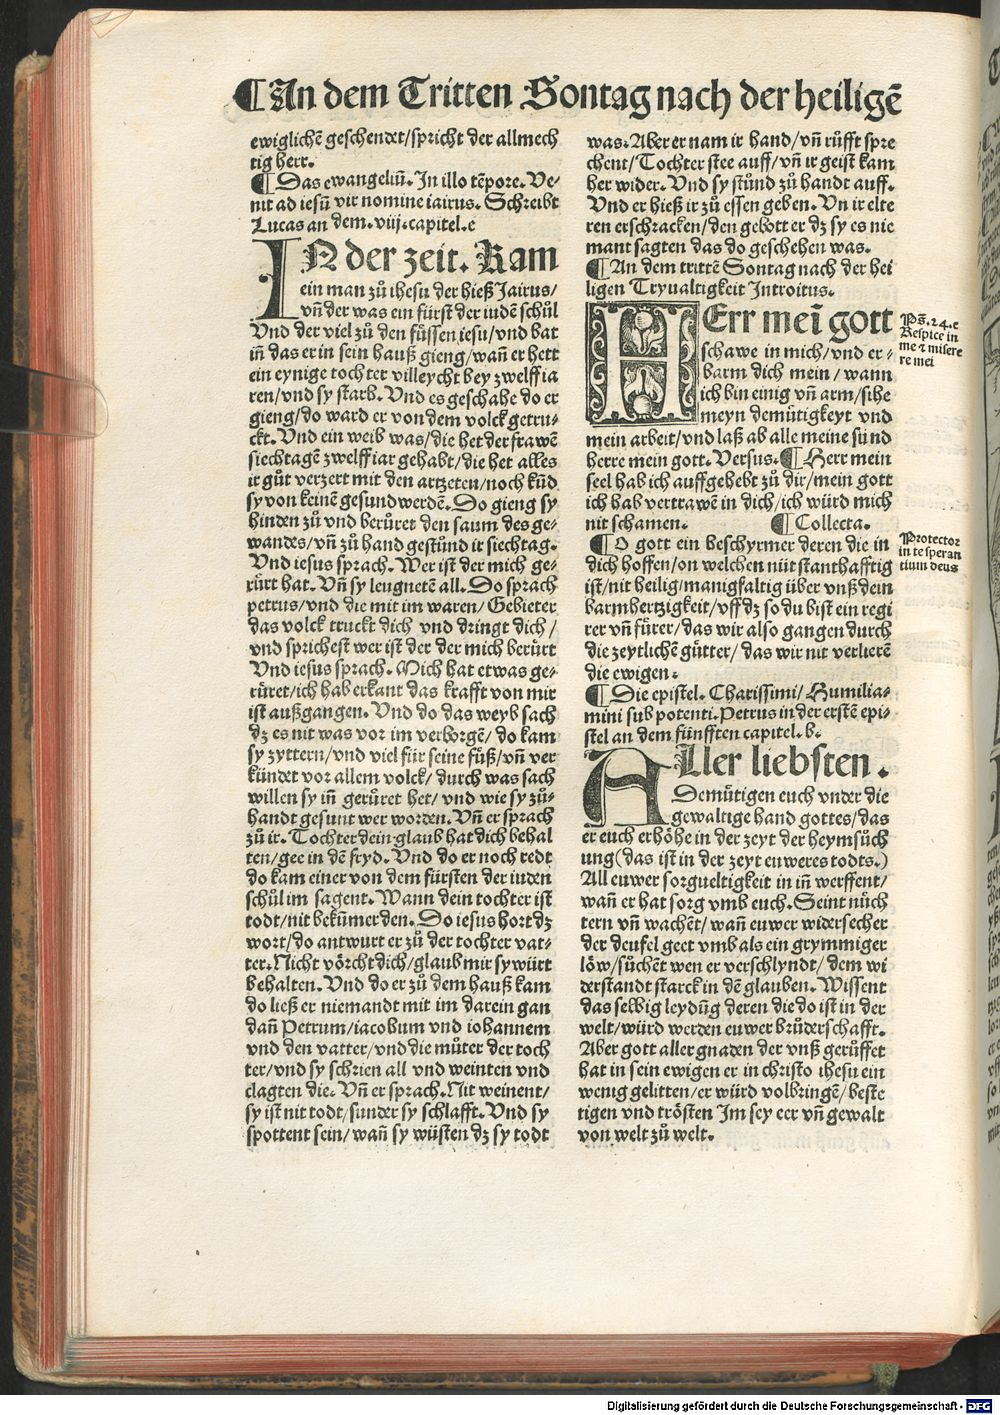 ¶ An dem Tritten Sontag nach der heiligẽ
ewiglichẽ geschendet/spricht der allmech
tig herr.
¶ Das ewangeliũ. In illo tẽpore. Ve-
nit ad iesũ vir nomine iairus. Schreibt
Lucas an dem. viij. capitel. c
IN der zeit. Kam
ein man zů ihesu der hieß Jairus/
vñ der was ein fürst der iudẽ schůl
Vnd der viel zů den füssen iesu/vnd bat
iñ das er in sein hauß gieng/wañ er hett
ein eynige tochter villeycht bey zwelff ia
ren/vnd sy starb. Vnd es geschahe do er
gieng/do ward er von dem volck getru-
ckt. Vnd ein weib was/die het der frawẽ
siechtagẽ zwelff iar gehabt/die het alles
ir gůt verzert mit den artzeten/noch kũd
sy von keinẽ gesund werdẽ. Do gieng sy
hinden zů vnd berůret den saum des ge-
wandes/vñ zů hand gestůnd ir siechtag.
Vnd iesus sprach. Wer ist der mich ge-
růrt hat. Vñ sy leugnetẽ all. Do sprach
petrus/vnd die mit im waren/Gebieter
das volck truckt dich vnd dringt dich/
vnd sprichest wer ist der der mich berürt
Vnd iesus sprach. Mich hat etwas ge-
rüret/ich hab erkant das krafft von mir
ist außgangen. Vnd do das weyb sach
dz es nit was vor im verborgẽ/do kam
sy zyttern/vnd viel für seine füß/vñ ver
kündet vor allem volck/durch was sach
willen sy iñ gerüret het/vnd wie sy zů-
handt gesunt wer worden. Vñ er sprach
zů ir. Tochter dein glaub hat dich behal
ten/gee in dẽ fryd. Vnd do er noch redt
do kam einer von dem fürsten der iuden
schůl im sagent. Wann dein tochter ist
todt/nit bekũmer den. Do iesus hort dz
wort/do antwurt er zů der tochter vat-
ter. Nicht vörcht dich/glaub mir sy würt
behalten. Vnd do er zů dem hauß kam
do ließ er niemandt mit im darein gan
dañ Petrum/iacobum vnd iohannem
vnd den vatter/vnd die můter der toch
ter/vnd sy schrien all vnd weinten vnd
clagten die. Vñ er sprach. Nit weinent/
sy ist nit todt/sunder sy schlafft. Vnd sy
spottent sein/wañ sy wüsten dz sy todt
was. Aber er nam ir hand/vñ růfft spre
chent/Tochter stee auff/vñ ir geist kam
her wider. Vnd sy stůnd zů handt auff.
Vnd er hieß ir zů essen geben. Vn ir elte
ren erschracken/den gebott er dz sy es nie
mant sagten das do geschehen was.
¶ An dem trittẽ Sontag nach der hei
ligen Tryualtigkeit Introitus.
HErr meĩ gott
schawe in mich/vnd er-
barm dich mein/wann
ich bin einig vñ arm/sihe
meyn demütigkeyt vnd
mein arbeit/vnd laß ab alle meine sünd
herre mein gott. Versus. ¶ Herr mein
seel hab ich auffgehebt zů dir/mein gott
ich hab vertrawẽ in dich/ich würd mich
nit schamen. ¶ Collecta.
¶ O gott ein beschyrmer deren die in
dich hoffen/on welchen nüt standthafftig
ist/nit heilig/manigfaltig über vnß dein
barmhertzigkeit/vff dz so du bist ein regi
rer vñ fürer/das wir also gangen durch
die zeytlichẽ gütter/das wir nit verlierẽ
die ewigen.
¶ Die epistel. Charissimi/Humilia-
mini sub potenti. Petrus in der erstẽ epi-
stel an dem fünfften capitel. b.
ALler liebsten.
Demütigen euch vnder die
gewaltige hand gottes/das
er euch erhöhe in der zeyt der heymsůch
ung(das ist in der zeyt euweres todts.)
All euwer sorgueltigkeit in iñ werffent/
wañ er hat sorg vmb euch. Seint nüch
tern vñ wachẽt/wañ euwer widersecher
der deufel geet vmb als ein grymmiger
löw/sůchẽt wen er verschlyndt/dem wi
derstandt starck in dẽ glauben. Wissent
das selbig leydũg deren die do ist in der
welt/würd werden euwer brůderschafft.
Aber gott aller gnaden der vnß gerůffet
hat in sein ewigen er in christo ihesu ein
wenig gelitten/er würd volbringẽ/beste
tigen vnd trösten Im sey eer vñ gewalt
von welt zů welt.
Ps. 24. c
Respice in
me & misere
re mei
Protector
in te speran
tium deus
Digitalisierung gefördert durch die Deutsche Forschungsgemeinschaft - DFG